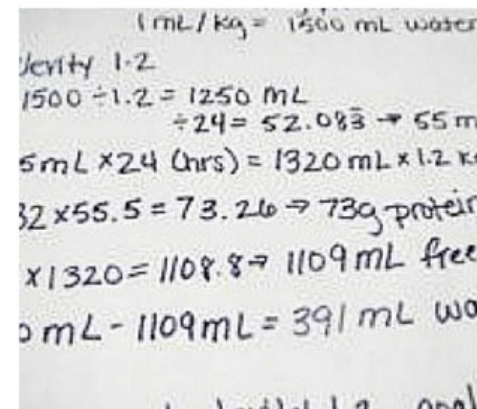 1mL/kg = 1500 mL water
Jevity 1.2
1500 ÷ 1.2 = 1250 mL
÷24 = 52.083̅ → 55 m
5mL x24 (hrs) = 1320 mL x 1.2 k
32 x 55.5 = 73.26 → 73g protein
x 1320 = 1108.8 → 1109 mL free
0 mL - 1109mL = 391 mL wa
1.2 goal